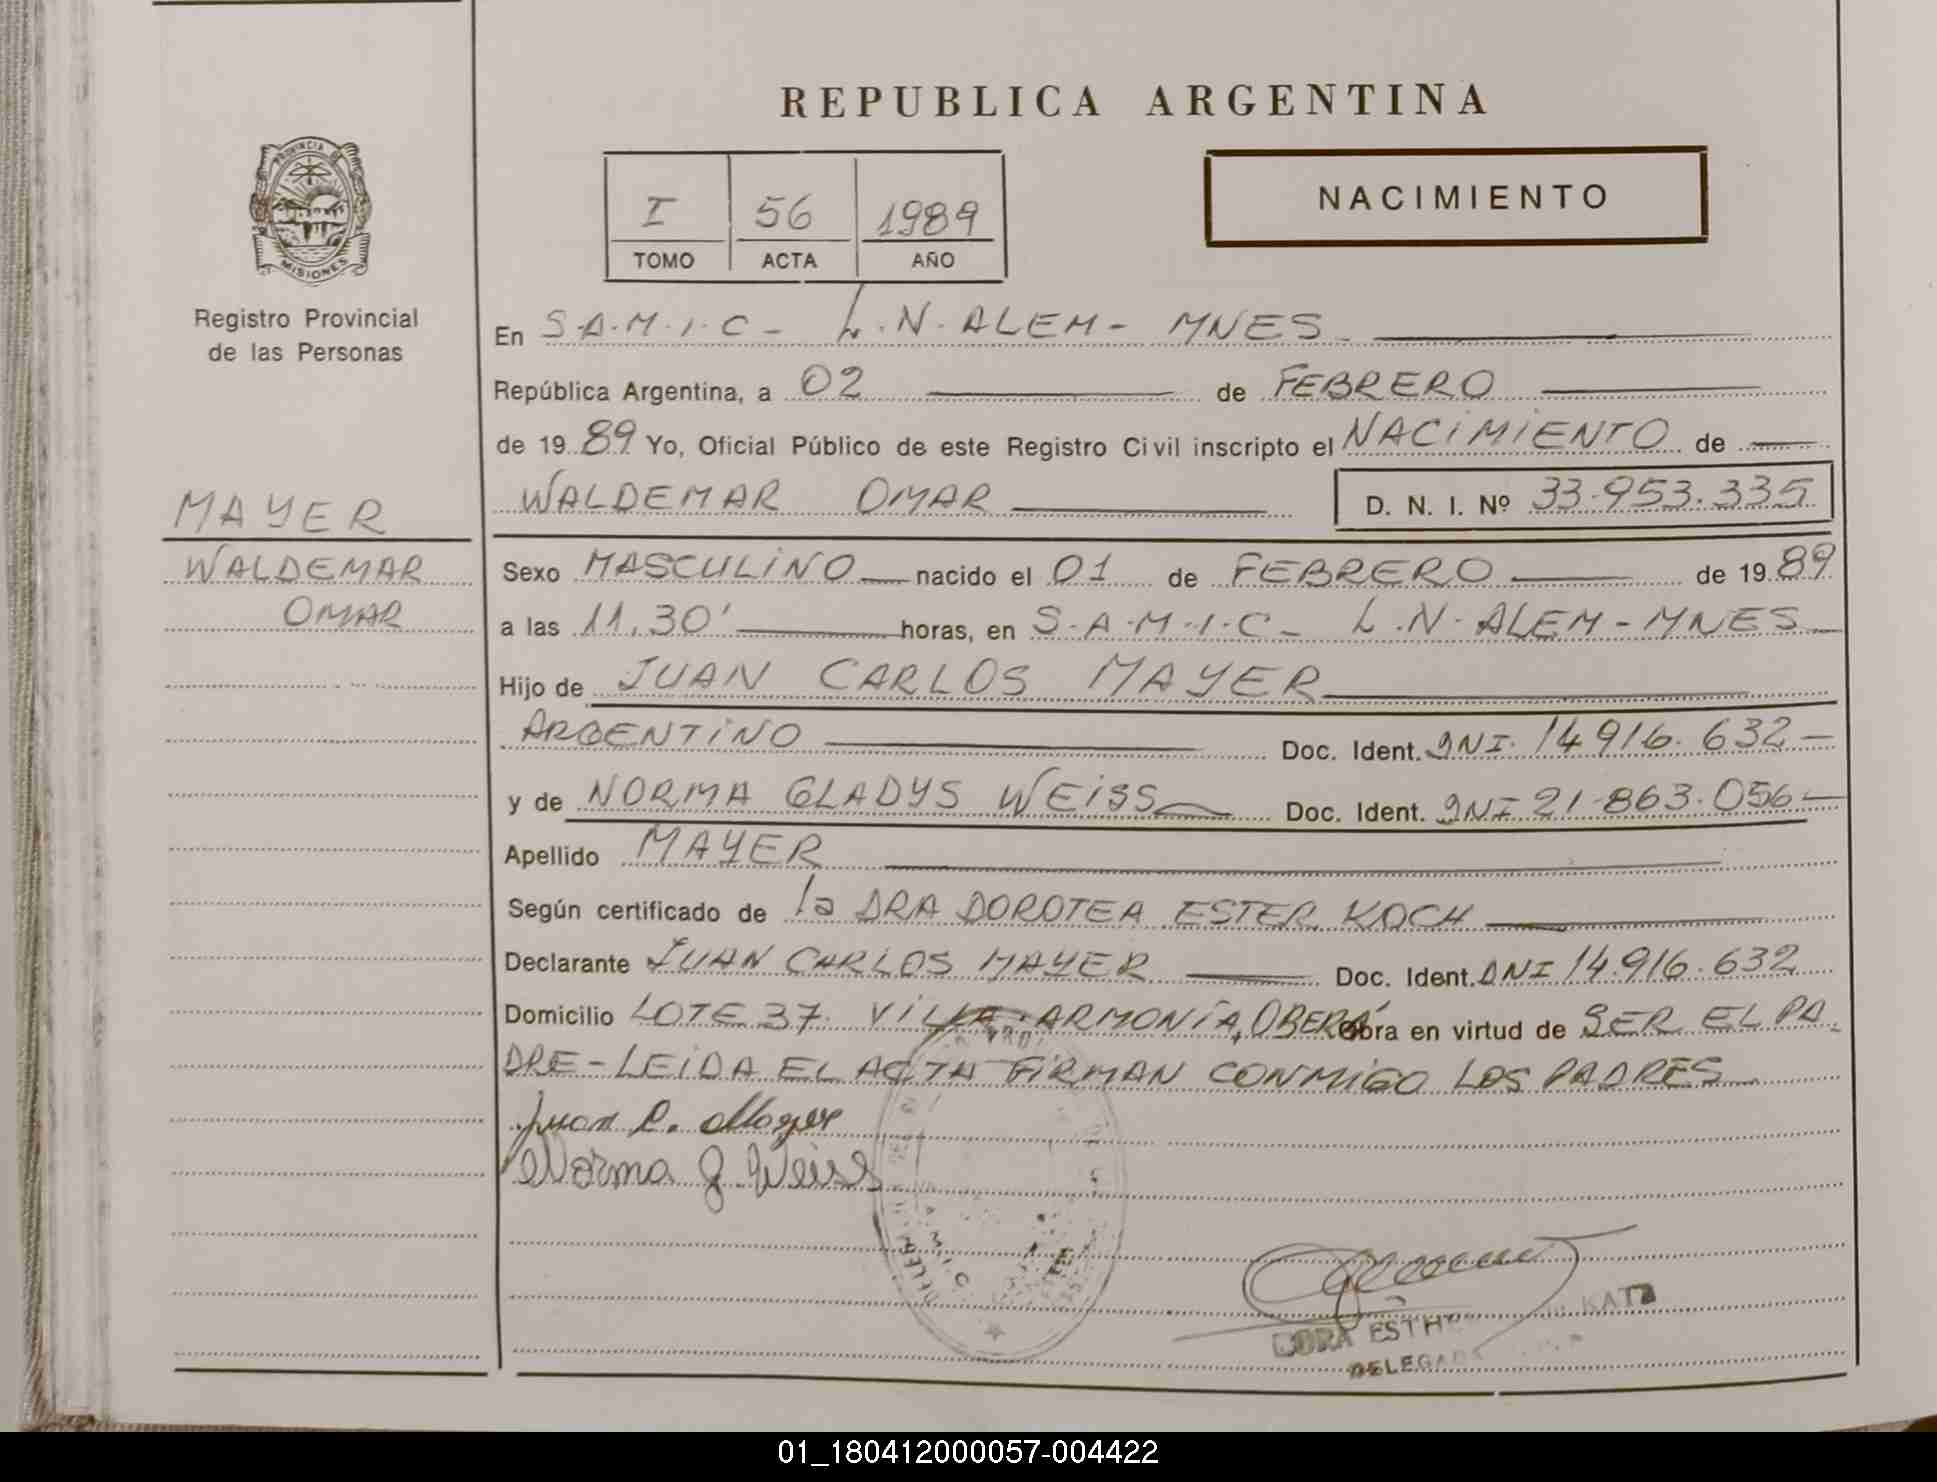 REPUBLICA ARGENTINA
PROVINCIA DE
MISIONES
Registro Provincial
de las Personas
I 56 1989
TOMO ACTA AÑO
NACIMIENTO
En S.A.M.I.C - L.N.ALEM - MNES
República Argentina, a 02 de FEBRERO
de 1989 Yo, Oficial Público de este Registro Civil inscripto el NACIMIENTO de
WALDEMAR OMAR D. N. I. Nº 33.953.335
MAYER
WALDEMAR
OMAR
Sexo MASCULINO nacido el 01 de FEBRERO de 1989
a las 11,30' horas, en S.A.M.I.C - L.N.ALEM - MNES
Hijo de JUAN CARLOS MAYER
ARGENTINO Doc. Ident. DNI. 14.916.632 -
y de NORMA GLADYS WEISS Doc. Ident. DNI 21.863.056 -
Apellido MAYER
Según certificado de la DRA DOROTEA ESTER KOCH
Declarante JUAN CARLOS MAYER Doc. Ident. DNI 14.916.632
Domicilio LOTE 37. VILLA ARMONÍA, OBERÁ Obra en virtud de SER EL PA-
DRE - LEIDA EL ACTA FIRMAN CONMIGO LOS PADRES
Juan C. Mayer
Norma G. Weiss
DORA ESTH KATZ
DELEGADA
01_180412000057-004422